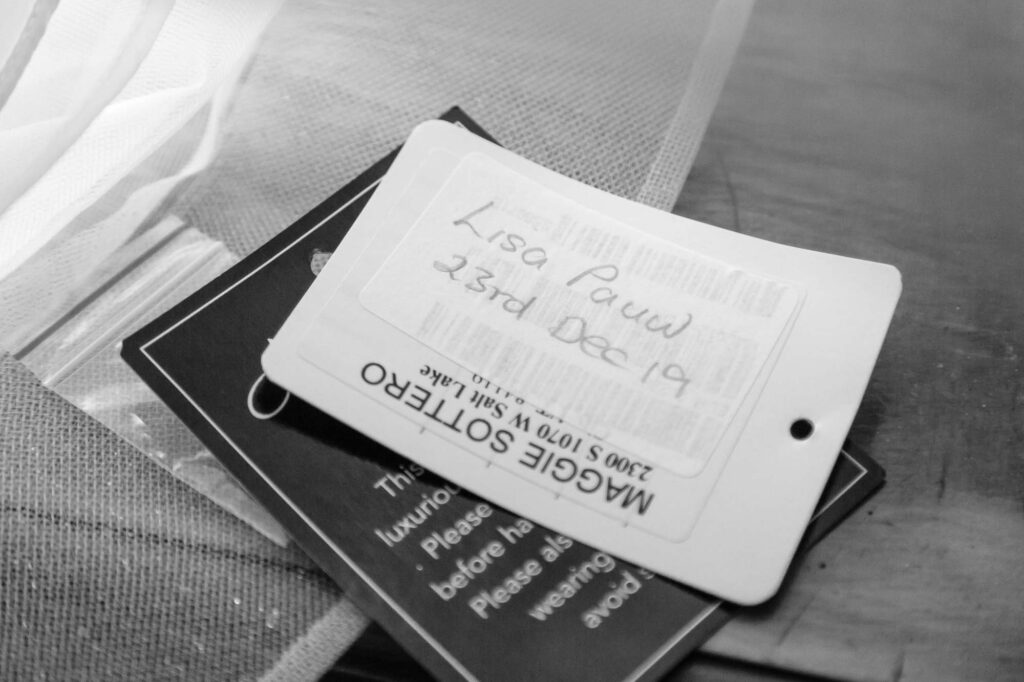 Lisa Pauw
23rd Dec 19
MAGGIE SOTTERO
2300 S 1070 W Salt Lake
84119
This
Please
before
Please
wearing
avoid